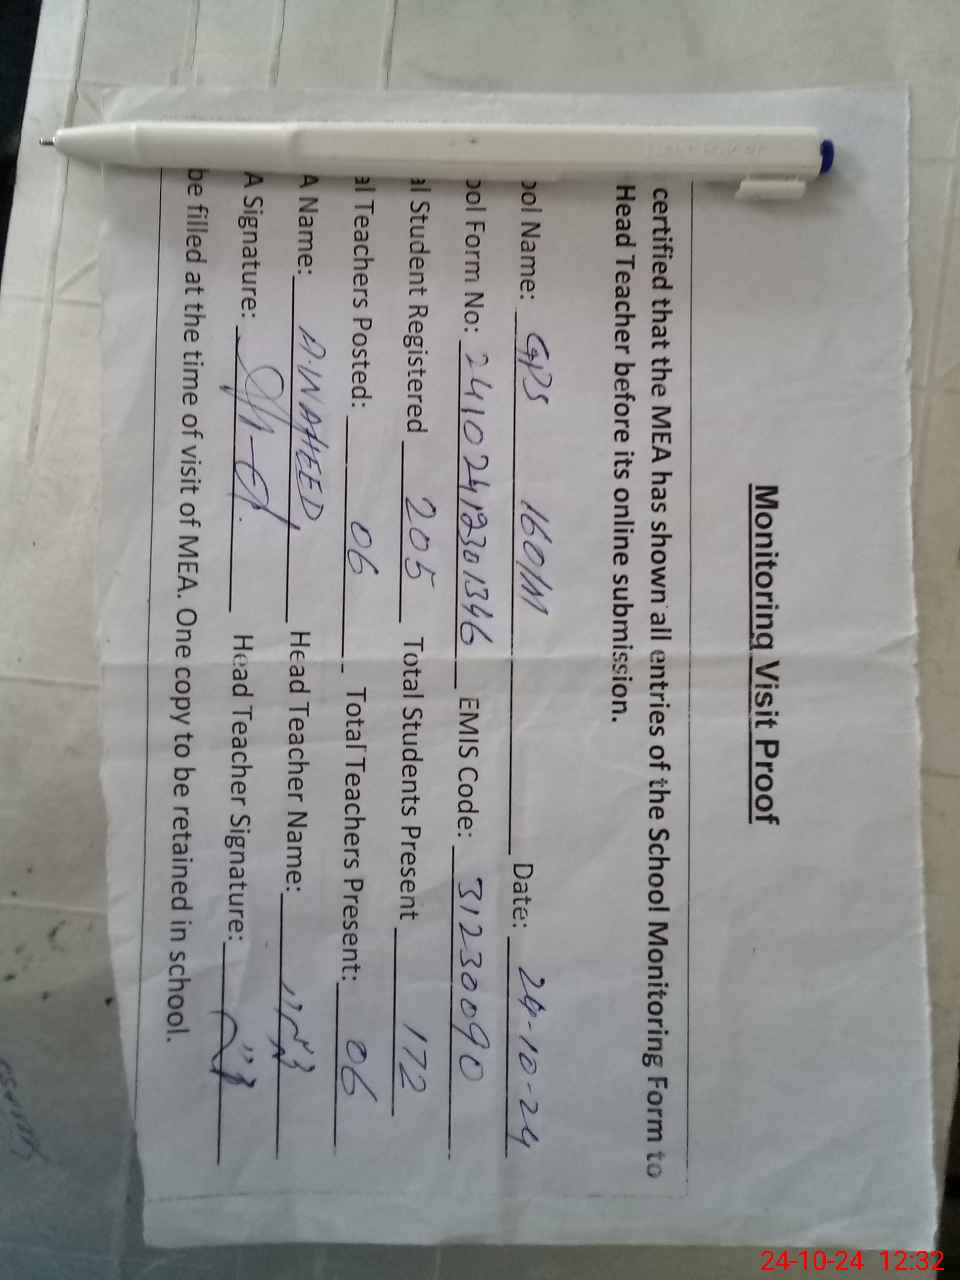 Monitoring Visit Proof
certified that the MEA has shown all entries of the School Monitoring Form to
Head Teacher before its online submission.
ool Name: GPS 160/M Date: 24-10-24
ool Form No: 24102412301346 EMIS Code: 31230090
al Student Registered 205 Total Students Present 172
al Teachers Posted: 06 Total Teachers Present: 06
A Name: A.WAHEED Head Teacher Name:
A Signature: Head Teacher Signature:
be filled at the time of visit of MEA. One copy to be retained in school.
24-10-24 12:32